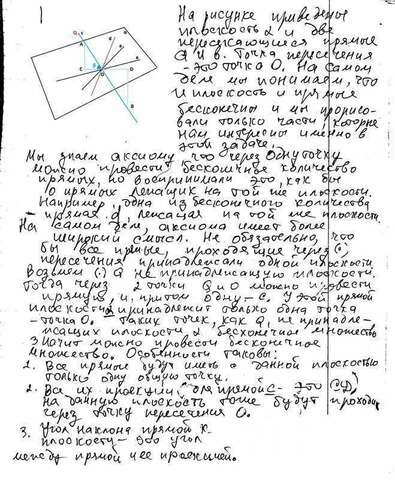 1
На рисунке приведены
плоскость α и две
пересекающиеся прямые
a и в. Точка пересечения
- это точка О. На самом
деле мы понимаем, что
и плоскость и прямые
бесконечны и мы прорисо-
вали только части, которые
нам интересны именно в
этой задаче.
Мы знаем аксиому, что через одну точку
можно провести бесконечное количество
прямых, но воспринимали это, как бы
о прямых лежащих на той же плоскости.
Например, одна из бесконечного количества
- прямая d, лежащая на той же плоскости.
На самом деле, аксиома имеет более
широкий смысл. Не обязательно, что
бы все прямые, проходящие через (·)
пересечения принадлежали одной плоскости
Возьмем (·) Q не принадлежащую плоскости.
Тогда через 2 точки Q и О можно провести
прямую и, притом одну - с. У этой прямой
плоскости α принадлежит только одна точка
- точка О. Таких точек, как Q, не принадле-
жащих плоскости α бесконечное множество
Значит можно провести бесконечное
множество. Особенности таковы:
1. Все прямые будут иметь с данной плоскостью
только одну общую точку.
2. Все их проекции, для прямой с - это (СD)
на данную плоскость тоже будут проходи
через точку пересечения О.
3. Угол наклона прямой к
плоскости - это угол
между прямой и ее проекцией.